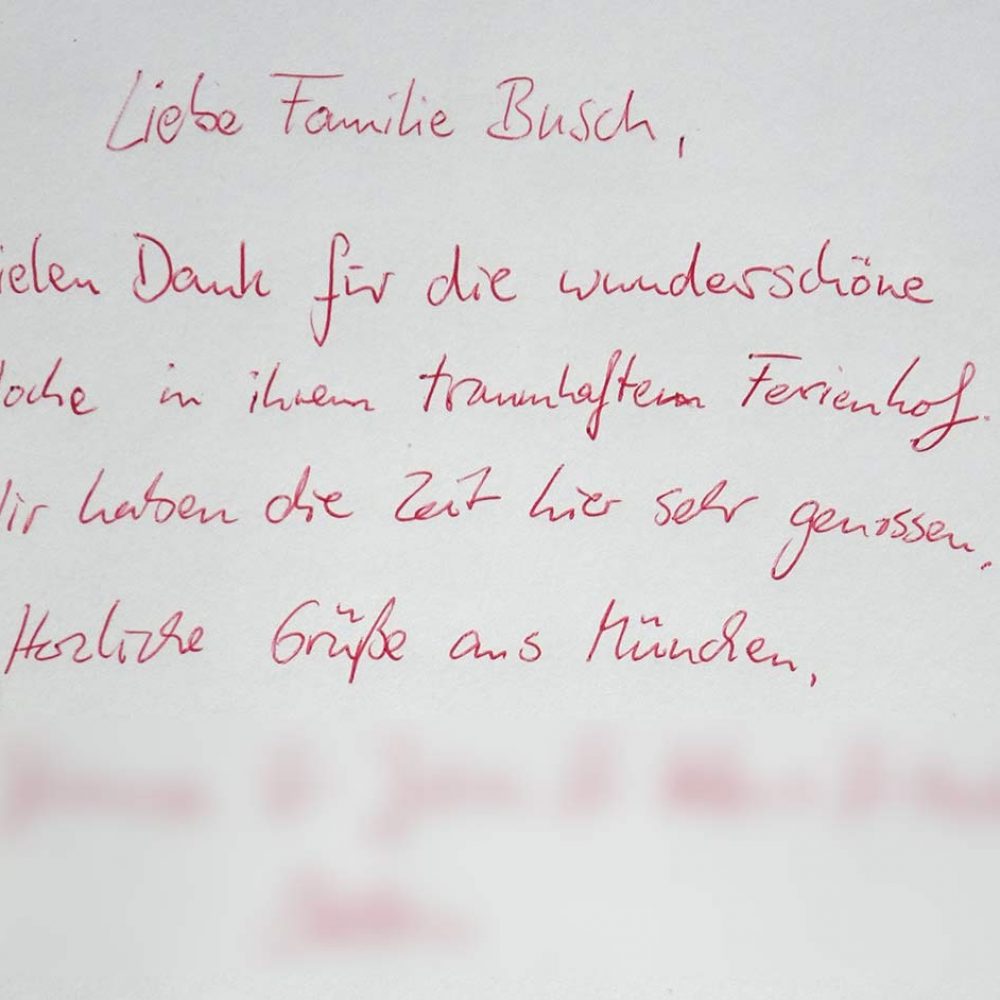 Liebe Familie Busch,
ielen Dank für die wunderschöne
oche in ihrem traumhaften Ferienhof.
ir haben die Zeit hier sehr genossen.
Herzliche Grüße aus München,